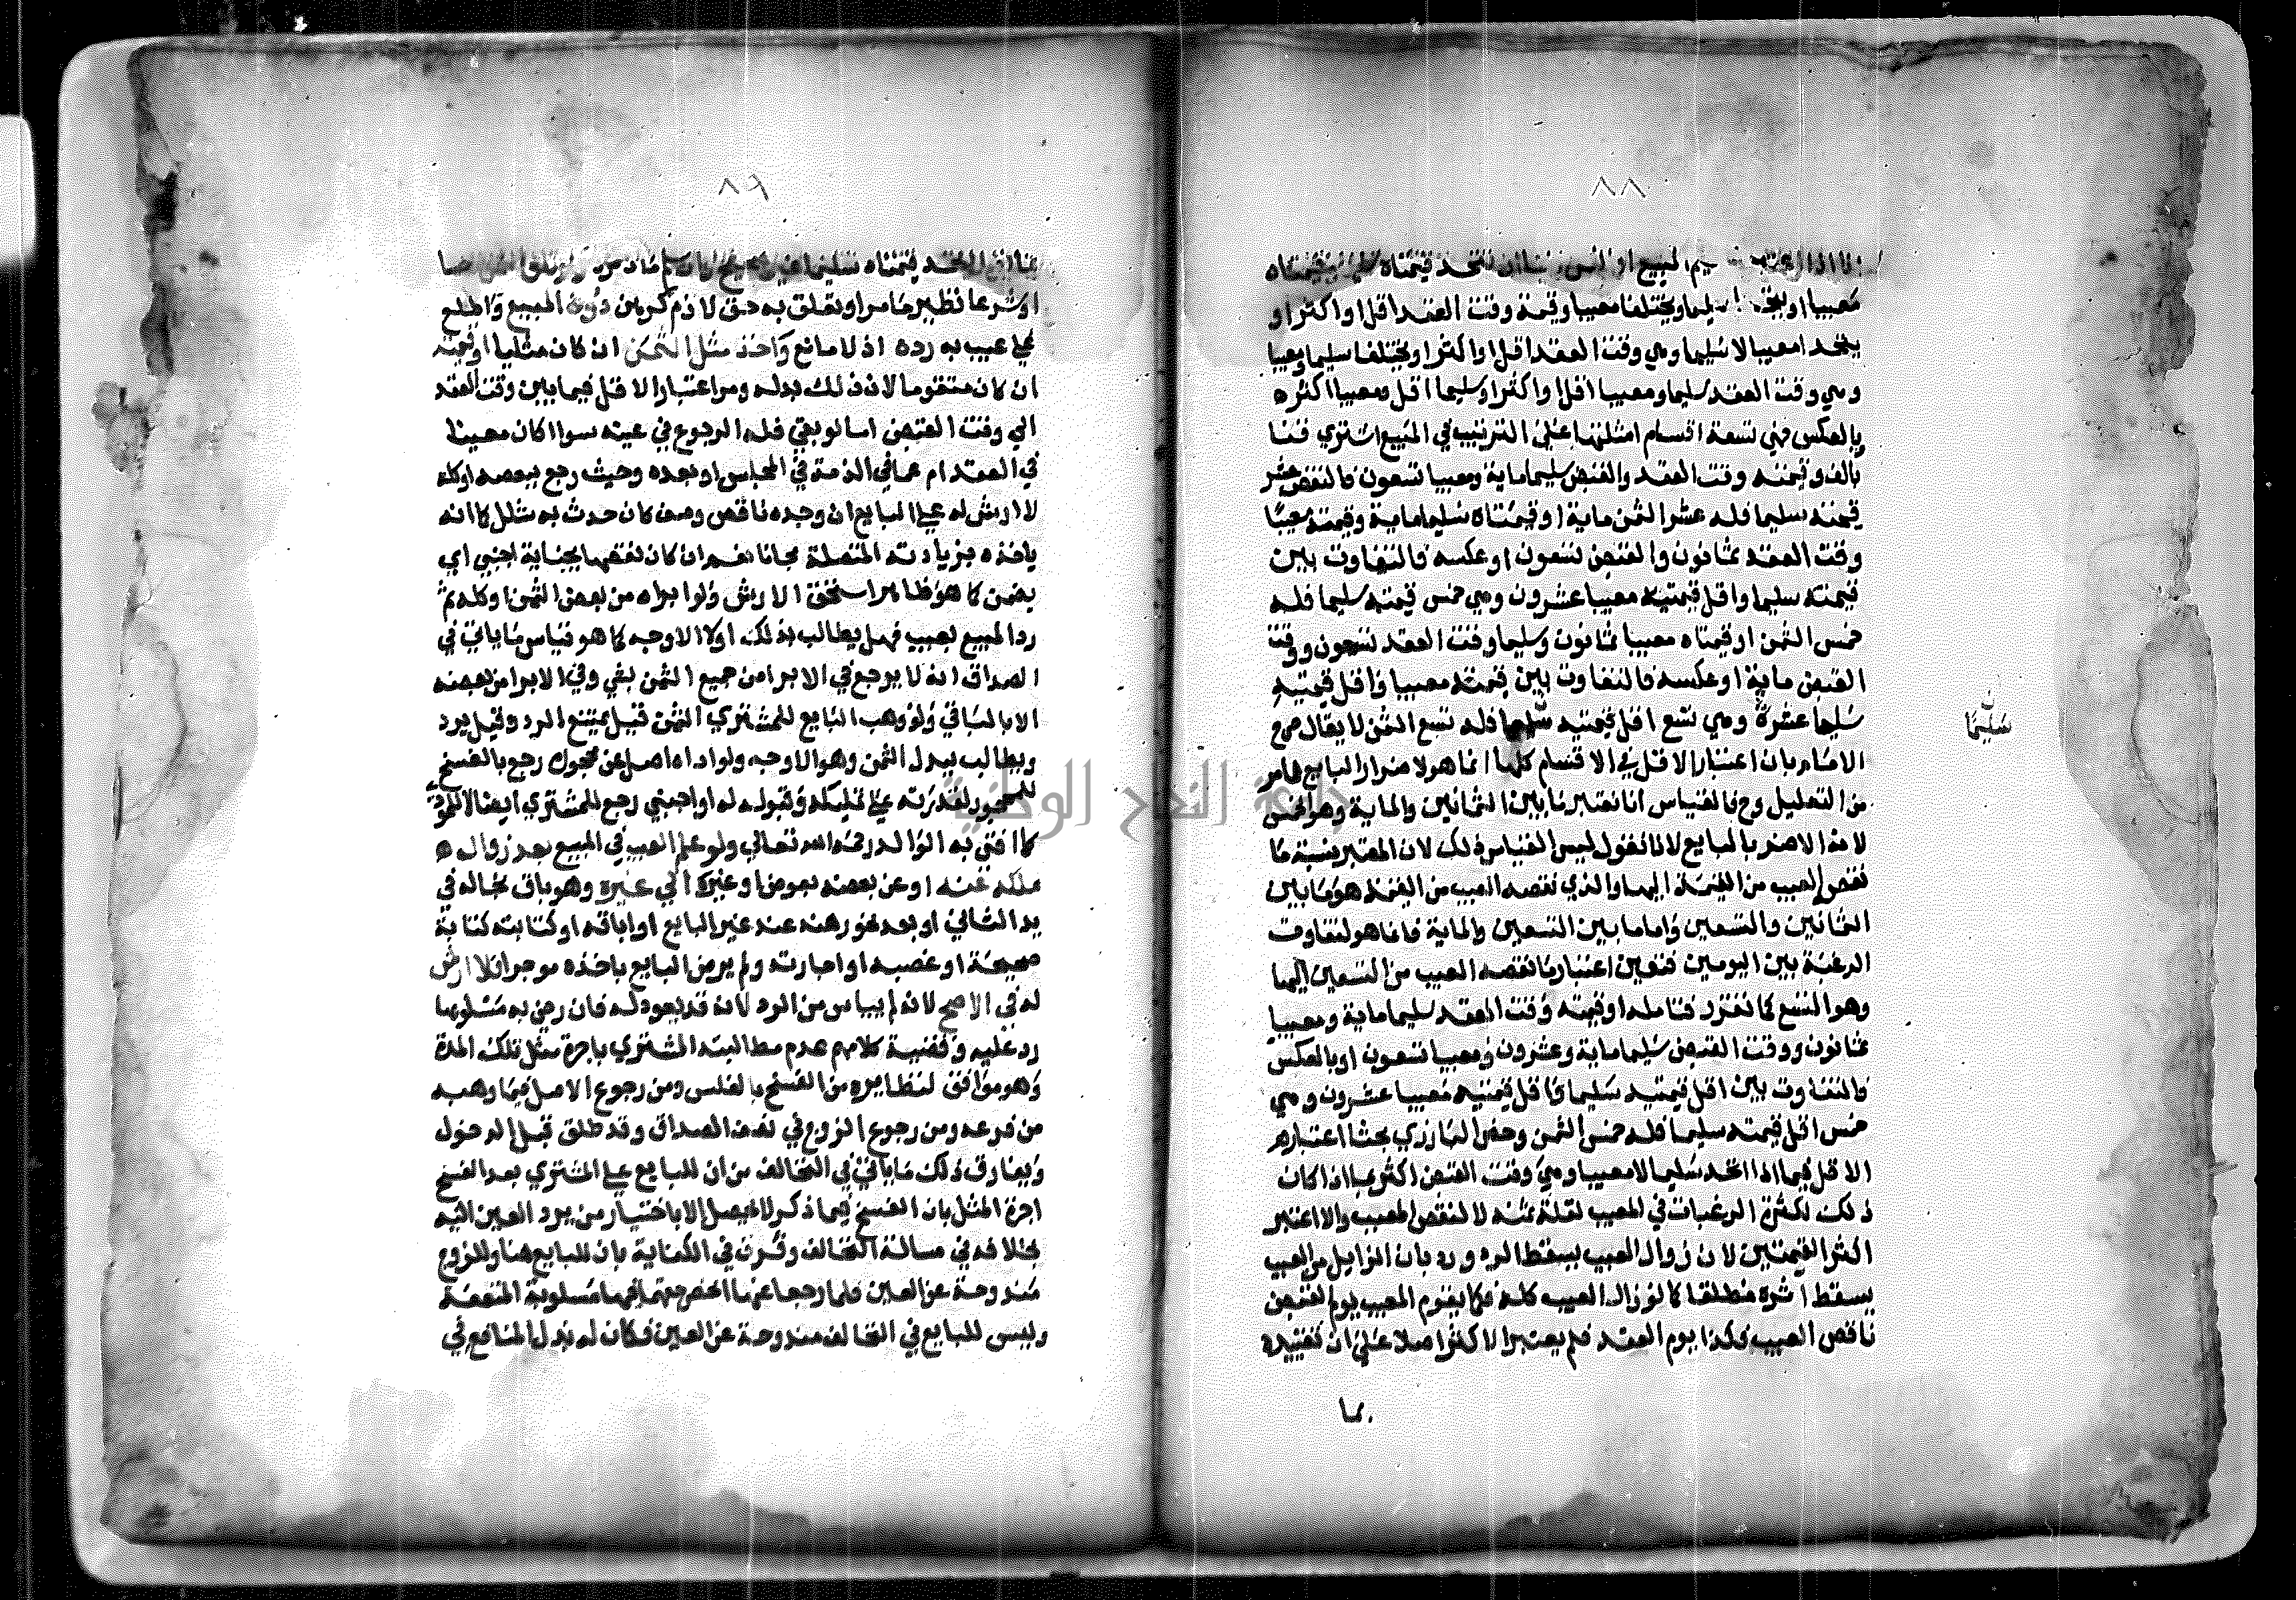 ٨٨
فاذا اعتبرت قيم المبيع او الثمن فاما ان تتحد قيمتاه سليما وقيمتاه
معيبا او يتحد سليما ويختلفا معيبا وقيمة وقت العقد اقل او اكثر او
يتحدا معيبا لا سليما وهي وقت العقد اقل او اكثر او يختلفا سليما ومعيبا
وهي وقت العقد سليما ومعيبا اقل او اكثر او سليما اقل ومعيبا اكثر
وبالعكس فهي تسعة اقسام امثلتها على الترتيب في المبيع اشتري قنا
بالف وقيمته وقت العقد والقبض سليما ماية ومعيبا تسعون فالنقص عشر
قيمته سليما فله عشر الثمن ماية او قيمتاه سليما ماية وقيمته معيبا
وقت العقد ثمانون والقبض تسعون او عكسه فالتفاوت بين
قيمته سليما واقل قيمتيه معيبا عشرون وهي خمس قيمته سليما فله
خمس الثمن او قيمتاه معيبا ثمانون وسليما وقت العقد تسعون ووقت
القبض ماية او عكسه فالتفاوت بين قيمته معيبا واقل قيمتيه
سليما عشرة وهي تسع اقل قيمتيه سليما فله تسع الثمن لا يقال صرح
سليما
الامام بان اعتبار الاقل في الاقسام كلها انما هو لاضرار البايع كما مر
من التعليل وح فالقياس انا نعتبر ما بين الثمانين والماية وهو الخمس
لان الاضر بالبايع لانا نقول ليس القياس ذلك لان المعتبر نسبة ما
نقص العيب من القيمة اليها والذي نقصه العيب من القيمة هو ما بين
الثمانين والتسعين واما ما بين التسعين والماية فانما هو لتفاوت
الرغبة بين اليومين فتعين اعتبار ما نقصه العيب من التسعين اليها
وهو التسع كما تقرر فتامله او قيمته وقت العقد سليما ماية ومعيبا
ثمانون ووقت القبض سليما ماية وعشرون ومعيبا تسعون او بالعكس
فالتفاوت بين اقل قيمتيه سليما واقل قيمتيه معيبا عشرون وهي
خمس اقل قيمته سليما فله خمس الثمن وخص البارزي بحثا اعتبارهم
الاقل فيما اذا اتحد سليما لا معيبا وهي وقت القبض اكثر بما اذا كان
ذلك لكثرة الرغبات في المعيب لقلة ثمنه لا لنقص العيب والا اعتبر
اكثر القيمتين لان زوال العيب يسقط الرد ورد بان الزايل من العيب
يسقط اثره مطلقا كما لو زال العيب كله فكما يقوم المعيب يوم القبض
ناقص العيب فكذا يوم العقد فلم يعتبر الاكثر اصلا على ان تقييده
بما
٨٩
بما اذا اتحد قيمتاه سليما غير صحيح وان
او شرعا نظير ما مر او تعلق به حق لازم كرهن دون المبيع واطلع
على عيب به رده اذ لا مانع واخذ مثل الثمن ان كان مثليا او قيمته
ان كان متقوما لان ذلك بدله ومر اعتبار الاقل فيما بين وقت العقد
الي وقت القبض اما لو بقي فله الرجوع في عينه سوا اكان معينا
في العقد ام عما في الذمة في المجلس او بعده وحيث رجع ببعضه او كله
لا ارش له على البايع ان وجده ناقص وصف كان حدث به شلل كما انه
ياخذه بزيادته المتصلة مجانا نعم ان كان نقصها بجناية اجنبي اي
يضمن كما هو ظاهر استحق الارش ولو ابراه من بعض الثمن او كله ثم
رد المبيع بعيب فهل يطالب بذلك او لا الاوجه كما هو قياس ما ياتي في
الصداق انه لا يرجع في الابرا من جميع الثمن بشي وفي الابرا من بعضه
الا بالباقي ولو وهب البايع للمشتري الثمن قيل يمتنع الرد وقيل يرد
ويطالب ببدل الثمن وهو الاوجه ولو اداه اصل عن محجوره رجع بالفسخ
للمحجور لقدرته على تمليكه وقبوله له او اجنبي رجع للمشتري ايضا لا للمودي
كما افتى به الوالد رحمه الله تعالي ولو علم العيب في المبيع بعد زوال
ملكه عنه او عن بعضه بعوض او غيره الي غيره وهو باق بحاله في
يد الثاني او بعد نحو رهنه عند غير البايع او اباقه او كتابته كتابة
صحيحة او غصبه او اجارته ولم يرض البايع باخذه موجرا فلا ارش
له في الاصح لانه لم يياس من الرد لانه قد يعود له فان رضي به مسلوبها
رد عليه وقضية كلامهم عدم مطالبته المشتري باجرة مثل تلك المدة
وهو موافق لنظايره من الفسخ بالفلس ومن رجوع الاصل فيما وهبه
من فرعه ومن رجوع الزوج في نصف الصداق وقد طلق قبل الدخول
ويفارق ذلك ما ياتي في التخالف من ان للبايع على المشتري بعد الفسخ
اجرة المثل بان الفسخ فيما ذكر لا يحصل الا باختيار من يرد العين اليه
بخلافه في مسالة التخالف وفرق في الكفاية بان للبايع هنا وللزوج
مندوحة عن العين فلما رجعا عنها انحصر حقهما فيها مسلوبة المنفعة
وليس للبايع في التخالف مندوحة عن العين فكان له بدل المنافع في
جامعة النجاح الوطنية